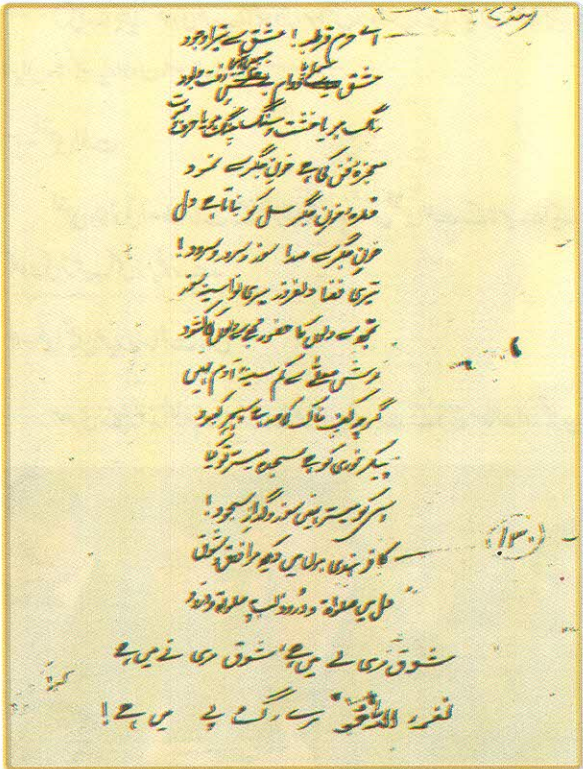 اے حرم قرطبہ! عشق سے تیرا وجود
عشق سراپا دوام جس میں نہیں رفت و بود
رنگ ہو یا خشت و سنگ، چنگ ہو یا حرف و صوت
معجزۂ فن کی ہے خون جگر سے نمود
قطرۂ خون جگر سل کو بناتا ہے دل
خون جگر سے صدا سوز و سرود و سرود!
تیری فضا دلفروز میری نوا سینہ سوز
تجھ سے دلوں کا حضور مجھ سے دلوں کی کشود
عرش معلّٰے سے کم سینۂ آدم نہیں
گرچہ کف خاک کی حد ہے سپہر کبود
پیکر نوری کو ہے سجدہ میسر تو کیا
اس کو میسر نہیں سوز و گداز سجود!
کافر ہندی ہوں میں دیکھ مرا ذوق و شوق
(۱۳)
دل میں صلوٰۃ و درود لب پہ صلوٰۃ و درود
شوق مری لے میں ہے شوق مری نے میں ہے
نغمۂ اللہ ھو میرے رگ و پے میں ہے!